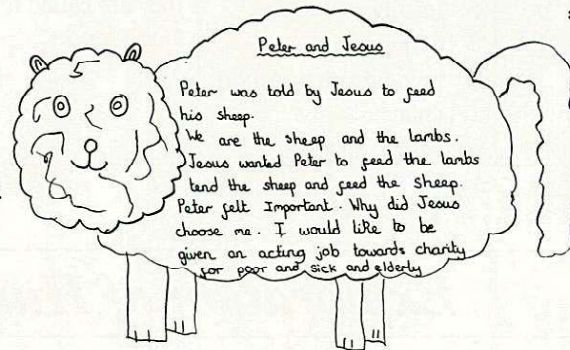 Peter and Jesus
Peter was told by Jesus to feed
his sheep.
We are the sheep and the lambs.
Jesus wanted Peter to feed the lambs
tend the sheep and feed the sheep.
Peter felt Important. Why did Jesus
choose me. I would like to be
given an acting job towards charity
for poor and sick and elderly